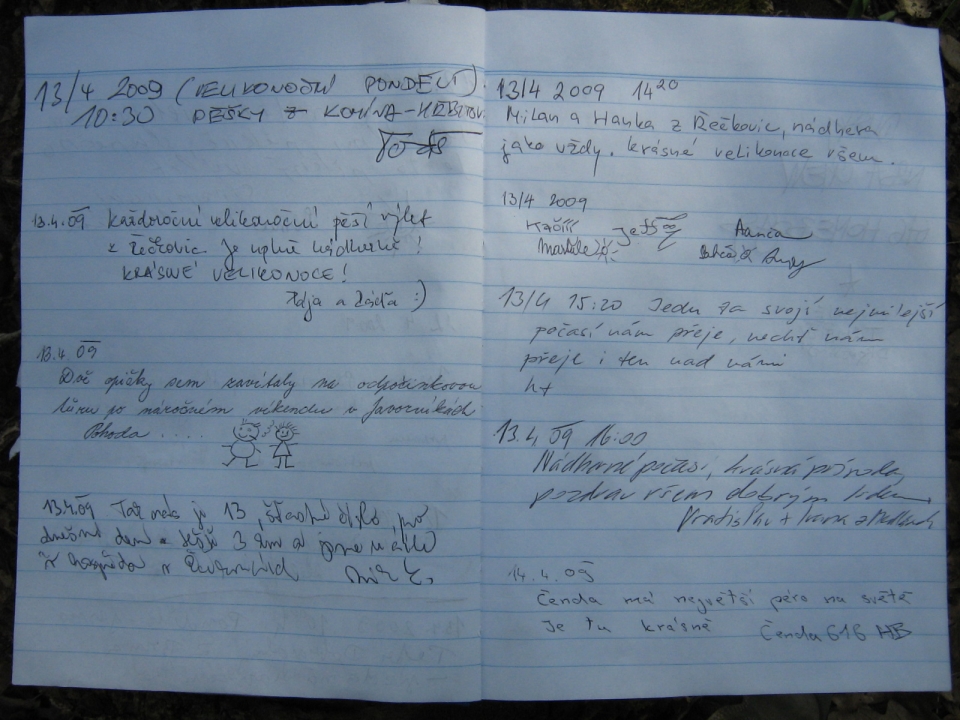 13/4 2009 (VELIKONOČNÍ PONDĚLÍ)
10:30 PĚŠKY Z KOMÍNA-HŘBITOV
13.4.09 Každoroční velikonoční pěší výlet
z Řečkovic. Je úplně nádherně!
KRÁSNÉ VELIKONOCE!
a :)
13.4.09
Dvě opičky sem zavítaly na odpočinkovou
túru po náročném víkendu v Javorníkách
Pohoda ....
13.4.09 Tak nás je 13, šťastné číslo pro
dnešní den a 3 km a jsme v cíli
13/4 2009 14 20
Milan a Hanka z Řečkovic, nádhera
jako vždy. krásné velikonoce všem.
13/4 2009
13/4 15:20 Jedu za svojí nejmilejší
počasí nám přeje, nechť nám
přeje i ten nad námi
13.4.09 16:00
Nádherné počasí, krásná příroda,
pozdrav všem dobrým lidem
Vratislav +
14.4.09
Čenda má největší péro na světě
Je tu krásně Čenda 616 HB